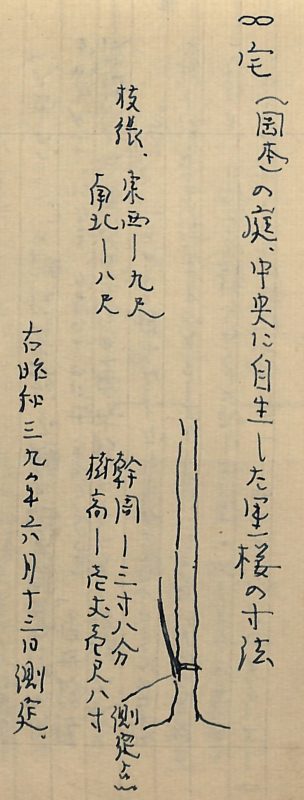 ∞宅(岡本)の庭、中央に自生した櫻の寸法
枝張、東西ー九尺
南北ー八尺
幹周ー三寸八分
樹高ー壱丈壱尺八寸
測定点
右昭和三九年六月十三日測定。